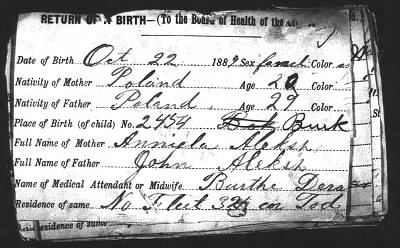 RETURN OF A BIRTH—(To the Board of Health of the
Date of Birth Oct 22 1889 Sex femal Color
Nativity of Mother Poland Age 20 Color
Nativity of Father Poland Age 29 Color
Place of Birth (of child) No. 2454 Burk
Full Name of Mother Anniela Aleksh
Full Name of Father John Aleksh
Name of Medical Attendant or Midwife Burthe Dera
Residence of same No
Residence of same